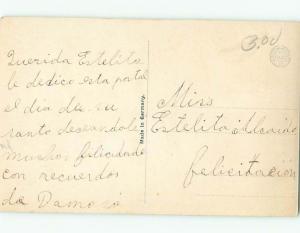 Querida Estelito
le dedico esta postal
el dia de su
santo deseandole
muchos felicidade
con recuerdos
de
Made in Germany.
3.00
Miss
Estelita
felicitación